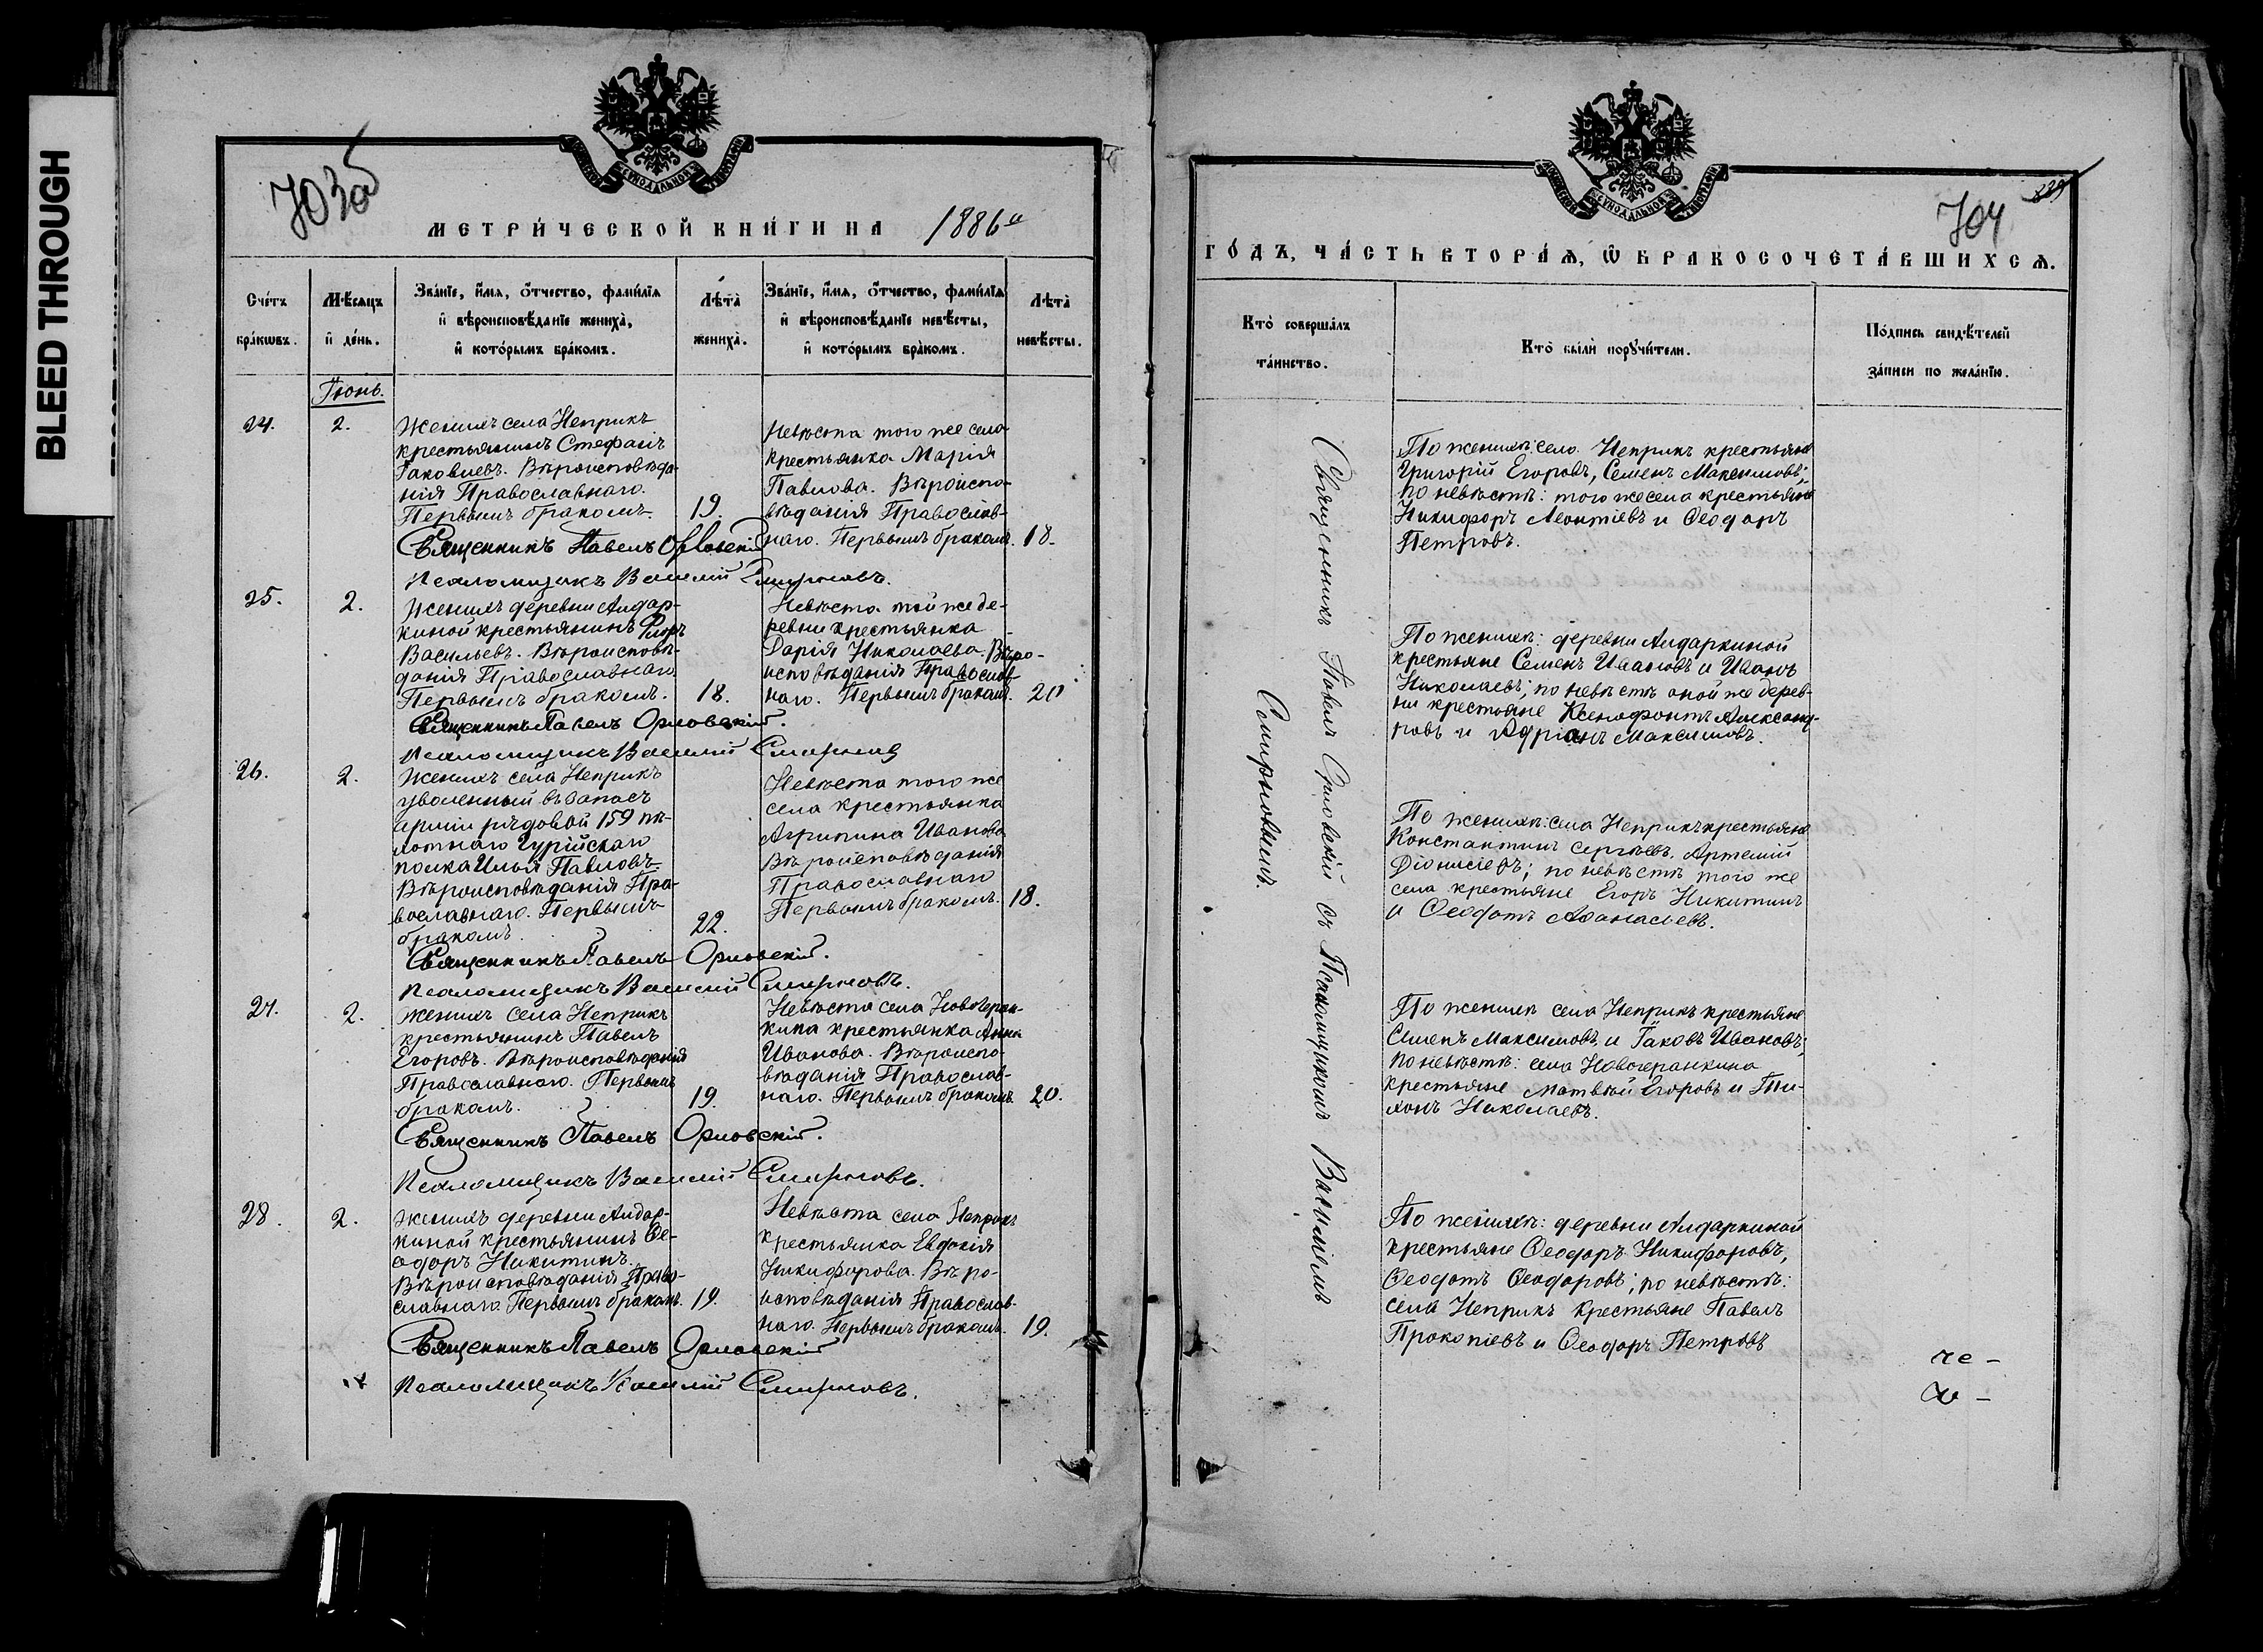 BLEED THROUGH
703об
МЕТРИ́ЧЕСКОЙ КНИ́ГИ НА 1886й
Сче́тъ бра́кωвъ.
Мѣ́сяцъ и҆ де́нь.
Зва́нїе, и҆́мя, ѻ҆́тчество, фами́лїя
и҆ вѣроисповѣ́данїе жениха̀,
и҆ кото́рымъ бра́комъ.
Лѣ́та̀ жениха̀.
Зва́нїе, и҆́мя, ѻ҆́тчество, фами́лїя
и҆ вѣроисповѣ́данїе невѣ́сты,
и҆ кото́рымъ бра́комъ.
Лѣ́та̀ невѣ́сты.
Іюнь.
24.
2.
Женихъ села Неприкъ
крестьянинъ Стефанъ
Іаковлевъ. Вѣроисповѣда-
нія Православнаго.
Первымъ бракомъ.
19.
Невѣста того же села
крестьянка Марія
Павлова. Вѣроиспо-
вѣданія Православ-
наго. Первымъ бракомъ.
18.
Священникъ Павелъ Орловскій
Псаломщикъ Василій Смирновъ.
25.
2.
Женихъ деревни Аидар-
киной крестьянинъ Флоръ
Васильевъ. Вѣроисповѣ-
данія Православнаго
Первымъ бракомъ.
18.
Невѣста той же де-
ревни крестьянка
Дарія Николаева. Вѣро-
исповѣданія Православ-
наго. Первымъ бракомъ.
20
Священникъ Павелъ Орловскій.
Псаломщикъ Василій Смирновъ
26.
2.
Женихъ села Неприкъ
уволенный въ запасъ
арміи рядовой 159 пѣ-
хотнаго Гурійскаго
полка Илья Павловъ
Вѣроисповѣданія Пра-
вославнаго. Первымъ
бракомъ.
22.
Невѣста того же
села крестьянка
Агрипина Иванова
Вѣроисповѣданія
Православнаго
Первымъ бракомъ.
18.
Священникъ Павелъ Орловскій.
Псаломщикъ Василій Смирновъ.
27.
2.
Женихъ села Неприкъ
крестьянинъ Павелъ
Егоровъ. Вѣроисповѣданія
Православнаго. Первымъ
бракомъ.
19.
Невѣста села Новогеран-
кина крестьянка Анна
Иванова. Вѣроиспо-
вѣданія Православ-
наго. Первымъ бракомъ.
20.
Священникъ Павелъ Орловскій.
Псаломщикъ Василій Смирновъ.
28.
2.
Женихъ деревни Аидар-
киной крестьянинъ Ѳе-
одоръ Никитинъ.
Вѣроисповѣданія Право-
славнаго. Первымъ бракомъ.
19.
Невѣста села Неприкъ
крестьянка Евдокія
Никифорова. Вѣро-
исповѣданія Православ-
наго. Первымъ бракомъ.
19.
Священникъ Павелъ Орловскій
Псаломщикъ Василій Смирновъ.
704
ГО́ДЪ, ЧА́СТЬ ВТОРА́Я, Ѡ҆ БРАКОСОЧЕТА́ВШИХСЯ.
Кто̀ соверша́лъ
та́инство.
Кто̀ бы́ли поручи́тели.
По́дпись свидѣ́телей
за́писи по жела́нїю.
Священникъ Павелъ Орловскій съ Псаломщикомъ Василіемъ
Смирновымъ.
По женихѣ: села Неприкъ крестьяне
Григорій Егоровъ, Семенъ Максимовъ;
по невѣстѣ: того же села крестьяне
Никифоръ Леонтіевъ и Ѳеодоръ
Петровъ.
По женихѣ: деревни Аидаркиной
крестьяне Семенъ Ивановъ и Иванъ
Николаевъ; по невѣстѣ оной же дерев-
ни крестьяне Ксенофонтъ Александ-
ровъ и Адріанъ Максимовъ.
По женихѣ: села Неприкъ крестьяне
Константинъ Сергѣевъ, Артемій
Діонисіевъ; по невѣстѣ того же
села крестьяне Егоръ Никитинъ
и Ѳеодотъ Аѳанасьевъ.
По женихѣ села Неприкъ крестьяне
Семенъ Максимовъ и Іаковъ Ивановъ;
по невѣстѣ: села Новогеранкина
крестьяне Матвѣй Егоровъ и Ти-
хонъ Николаевъ.
По женихѣ: деревни Аидаркиной
крестьяне Ѳеодоръ Никифоровъ,
Ѳеодотъ Ѳеодоровъ; по невѣстѣ:
села Неприкъ крестьяне Павелъ
Прокопіевъ и Ѳеодоръ Петровъ